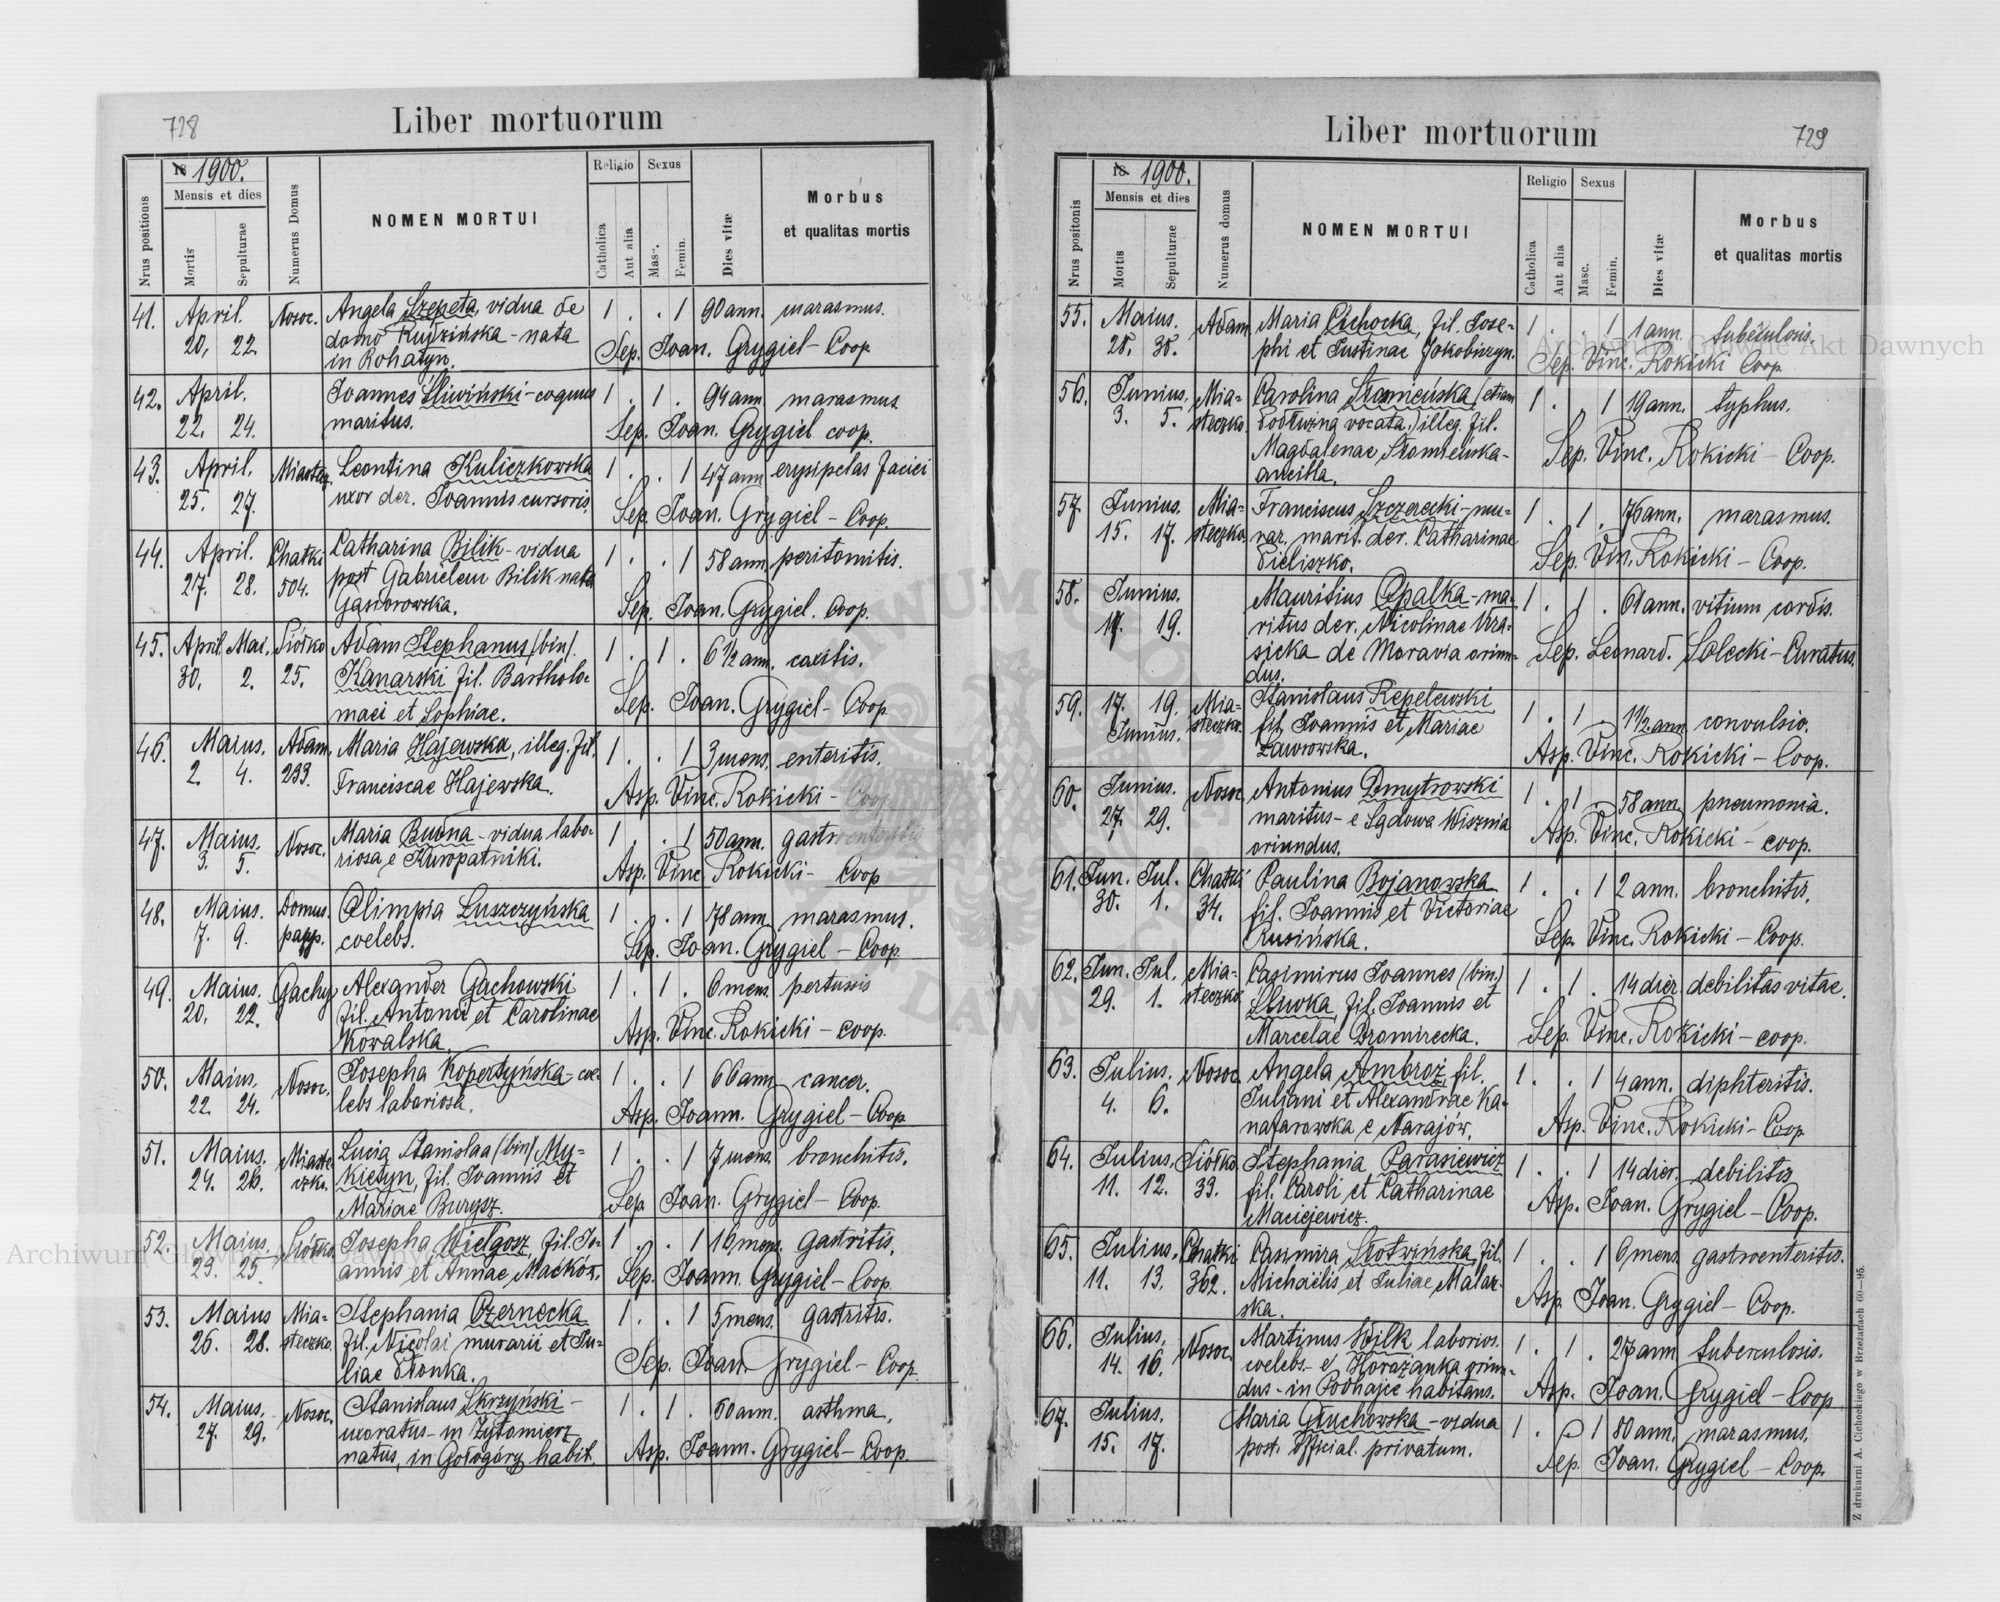 728
Liber mortuorum
Nrus positionis
18 1900.
Mensis et dies
Mortis
Sepulturae
Numerus Domus
NOMEN MORTUI
Religio
Catholica
Aut alia
Sexus
Masc.
Femin.
Dies vitæ
Morbus
et qualitas mortis
41. April. Nosoc. Angela Szepeta, vidua de 1 . . 1 90 ann. marasmus.
20, 22 domo Kudzińska - nata Sep. Joan. Grygiel - Coop.
in Rohatyn.
42. April. Joannes Śliwiński - coquus 1 . 1 . 94 ann. marasmus
22. 24. maritus. Sep. Joan. Grygiel coop.
43. April. Miastecz. Leontina Kuliczkowska 1 . . 1 47 ann erysipelas faciei
25. 27. uxor der. Joannis cursoris. Sep. Joan. Grygiel - Coop.
44. April. Chatki Catharina Bilik - vidua 1 . . 1 58 ann. peritonitis.
27. 28. 504. post Gabrielem Bilik nata Sep. Joan. Grygiel. Coop.
Gąsiorowska.
45. April. Mai. Siółko Adam Stephanus (bin). 1 . 1 . 6 1/2 ann. caxitis.
30. 2. 25. Kanarski fil. Bartholo-
maei et Sophiae. Sep. Joan. Grygiel - Coop
46. Maius. Adam. Maria Hajewska, illeg. fil. 1 . . 1 3 mens. enteritis.
2. 4. 233. Franciscae Hajewska. Asp. Vinc. Rokicki - Coop
47. Maius. Nosoc. Maria Budna - vidua labo- 1 . . 1 50 ann. gastroenteritis
3. 5. riosa e Kuropatniki. Asp. Vinc. Rokicki - Coop
48. Maius. Domus Olimpia Łuszczyńska 1 . . 1 78 ann. marasmus.
7. 9. papp. coelebs. Sep. Joan. Grygiel - Coop.
49. Maius. Gachy Alexander Gachowski 1 . 1 . 6 mens. pertussis
20. 22. fil. Antonii et Carolinae Asp. Vinc. Rokicki - coop.
Kowalska.
50. Maius. Nosoc. Josepha Kopertyńska - coe- 1 . . 1 66 ann. cancer.
22 24. lebs laboriosa. Asp. Joann. Grygiel - Coop
51. Maius. Miaste- Lucia Stanislaa (bin) My- 1 . . 1 7 mens. bronchitis.
24. 26. czko. kietyn, fil. Joannis et Sep. Joan. Grygiel - Coop.
Mariae Burysz.
52. Maius. Siółko Josepha Wielgosz, fil. Jo- 1 . . 1 16 mens. gastritis.
23. 25. annis et Annae Maćków. Sep. Joann. Grygiel - Coop.
53. Maius Mia- Stephania Czernecka 1 . . 1 5 mens. gastritis.
26. 28. steczko. fil. Nicolai murarii et Ju- Sep. Joan. Grygiel - Coop.
liae Słonka.
54. Maius. Nosoc. Stanislaus Skrzyński - 1 . 1 . 60 ann. asthma.
27. 29. uxoratus - in Żytomierz Asp. Joann. Grygiel - Coop.
natus, in Gołogóry habit.
Liber mortuorum
729
Nrus positonis
18 1900.
Mensis et dies
Mortis
Sepulturae
Numerus domus
NOMEN MORTUI
Religio
Catholica
Aut alia
Sexus
Masc.
Femin.
Dies vitæ
Morbus
et qualitas mortis
55. Maius. Adam Maria Cichocka, fil. Jose- 1 . . 1 1 ann. tuberculosis.
28. 30. phi et Justinae Jakobiszyn. Sep. Vinc. Rokicki Coop
56. Junius. Mia- Carolina Słomieńska (etiam 1 . . 1 19 ann. typhus.
3. 5. steczko. vocata.) illeg. fil.
Magdalenae Słomieńska - Sep. Vinc. Rokicki - Coop.
ancilla.
57. Junius. Mia- Franciscus Szczerecki - mu- 1 . 1 . 76 ann. marasmus.
15. 17. steczko. rar. marit. der. Catharinae Sep. Vin. Rokicki - Coop.
Pieliszko.
58. Junius. Mauritius Opalka - ma- 1 . 1 . 61 ann. vitium cordis.
17. 19. ritus der. Nicolinae Wra-
sicka de Moravia oriun- Sep. Leonard. Solecki - Curatus.
dus.
59. 17. 19. Mia- Stanislaus Repelewski 1 . 1 1 1/2 ann convulsio.
Junius. steczko. fil. Joannis et Mariae Asp. Vinc. Rokicki - Coop.
Ławrowska.
60. Junius. Nosoc. Antonius Dmytrowski 1 . 1 58 ann. pneumonia.
27. 29. maritus - e Sądowa Wisznia Asp. Vinc. Rokicki - coop.
oriundus.
61. Jun. Jul. Chatki Paulina Bojanowska 1 . . 1 2 ann. bronchitis.
30. 1. 34. fil. Joannis et Victoriae
Rusińska. Sep. Vinc. Rokicki - Coop.
62. Jun. Jul. Mia- Casimirus Joannes (bin.) 1 . 1 . 14 dier. debilitas vitae.
29. 1. steczko. Śliwka, fil. Joannis et
Marcelae Dromirecka. Sep. Vinc. Rokicki - coop.
63. Julius. Nosoc. Angela Ambroż, fil. 1 . . 1 4 ann. diphteritis.
4. 6. Juliani et Alexandrae Ka-
natarowska e Narajów. Asp. Vinc. Rokicki - Coop
64. Julius. Siółko Stephania Parasiewicz 1 . . 1 14 dier. debilitis
11. 12. 33. fil. Caroli et Catharinae Asp. Joan. Grygiel - Coop.
Maciejewicz.
65. Julius. Chatki Casimira Słotwińska, fil. 1 . . 1 6 mens. gastroenteritis.
11. 13. 362. Michaëlis et Juliae Malar-
ska. Asp. Joan. Grygiel - Coop.
66. Julius. Nosoc. Martinus Wilk laborios. 1 . 1 . 27 ann tuberculosis.
14. 16. coelebs - e Horażanka oriun-
dus - in Podhajce habitans. Asp. Joan. Grygiel - Coop
67. Julius. Maria Głuchowska - vidua 1 . . 1 80 ann. marasmus.
15. 17. post. official. privatum. Sep. Joan. Grygiel - Coop.
Z drukarni A. Cichockiego w Brzeżanach 60—95.
Archiwum Główne Akt Dawnych
Archiwum Główne Akt Dawnych